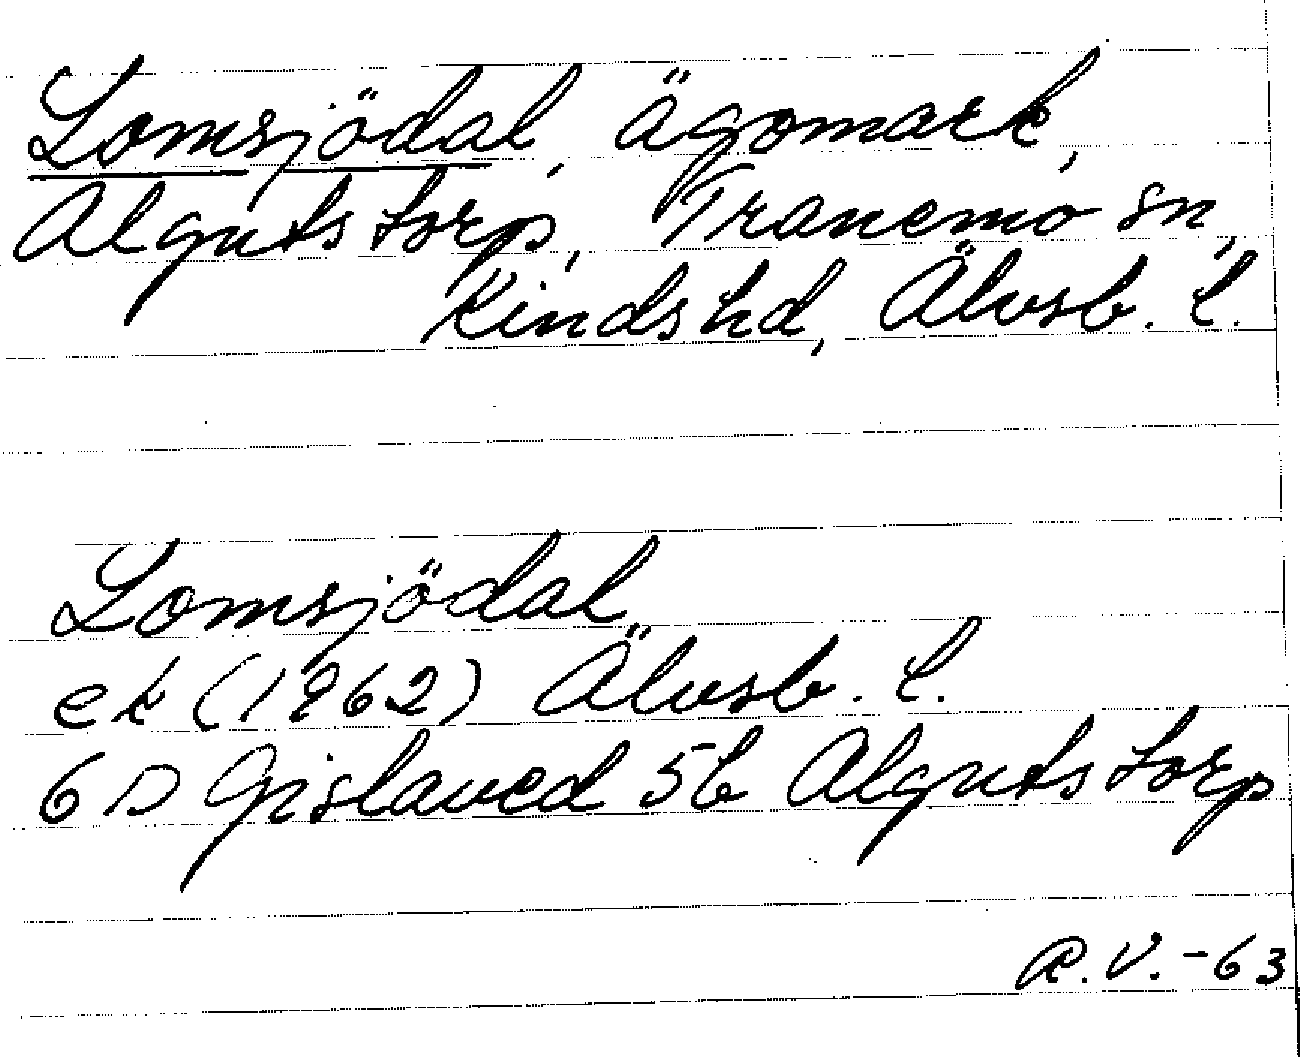 Lomsjödal, ägomark,
Algutstorp, Tranemo sn,
Kinds hd, Älvsb. l.
Lomsjödal
ek (1962) Älvsb. l.
6 D Gislaved 5b Algutstorp
R.V.-63